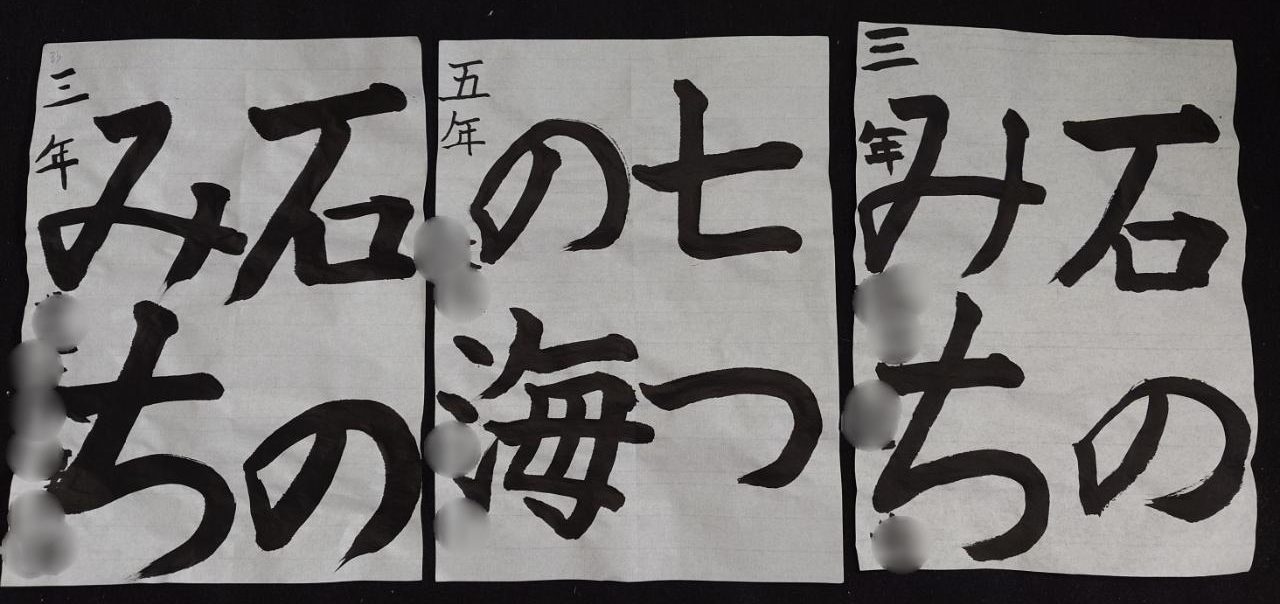 石の
みち
三年
七つ
の海
五年
石の
みち
三年